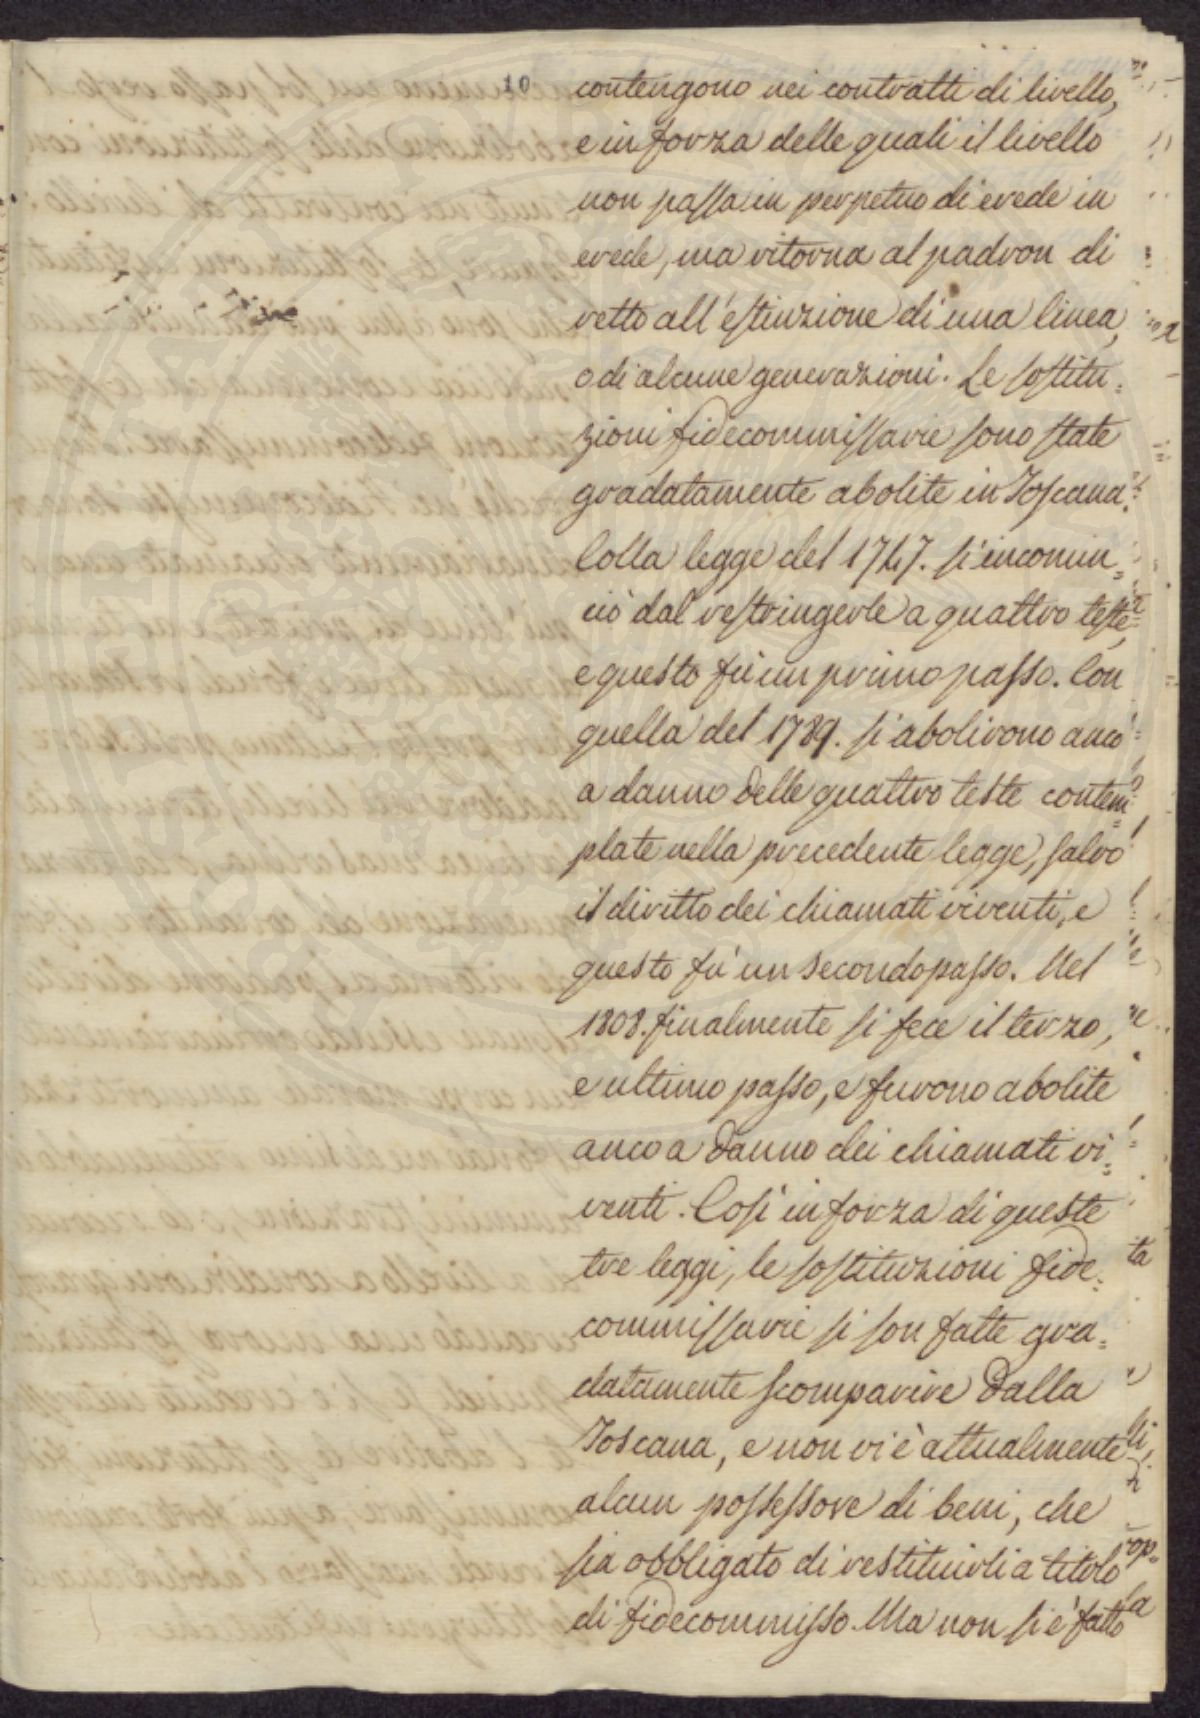 10
contengono nei contratti di livello,
e in forza delle quali il livello
non passa in perpetuo di erede in
erede, ma ritorna al padron di
retto all'estinzione di una linea,
o di alcune generazioni. Le sostitu=
zioni fidecommissarie sono state
gradatamente abolite in Toscana.
Colla legge del 1747. si incomin=
ciò dal restringerle a quattro teste,
e questo fù un primo passo. Con
quella del 1789. si abolirono anco
a danno delle quattro teste contem=
plate nella precedente legge, salvo
il diritto dei chiamati viventi, e
questo fù un secondo passo. Nel
1808. finalmente si fece il terzo,
e ultimo passo, e furono abolite
anco a danno dei chiamati vi=
venti. Così in forza di queste
tre leggi, le sostituzioni fide=
commissarie si son fatte gra=
datamente scomparire dalla
Toscana, e non vi è attualmente
alcun possessore di beni, che
sia obbligato di restituirli a titolo
di fidecommisso. Ma non si è fatto